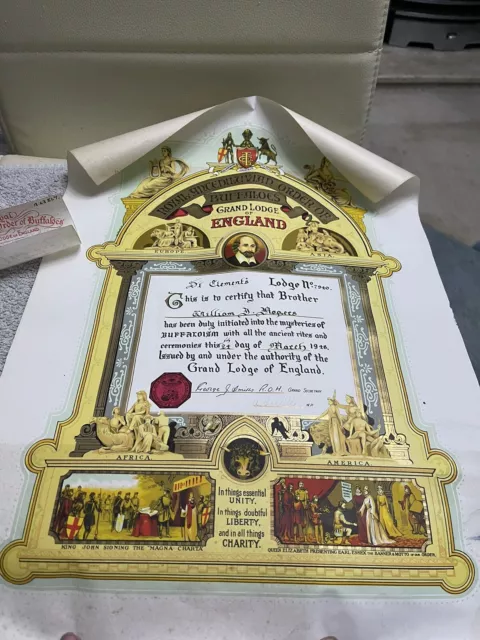 Order of Buffaloes
ROYAL ANTEDILUVIAN ORDER OF
BUFFALOES
GRAND LODGE
OF
ENGLAND
EUROPE
ASIA
St Clements Lodge No
This is to certify that Brother
William
has been duly initiated into the mysteries of
BUFFALOISM with all the ancient rites and
ceremonies this 24 day of March 19
Issued by and under the authority of the
Grand Lodge of England.
George J. R.O.H. GRAND SECRETARY
AFRICA.
AMERICA.
In things essential
UNITY.
In things doubtful
LIBERTY,
and in all things
CHARITY.
KING JOHN SIGNING THE "MAGNA CHARTA
QUEEN ELIZABETH PRESENTING EARL ESSEX THE BANNER & MOTTO OF OUR ORDER.